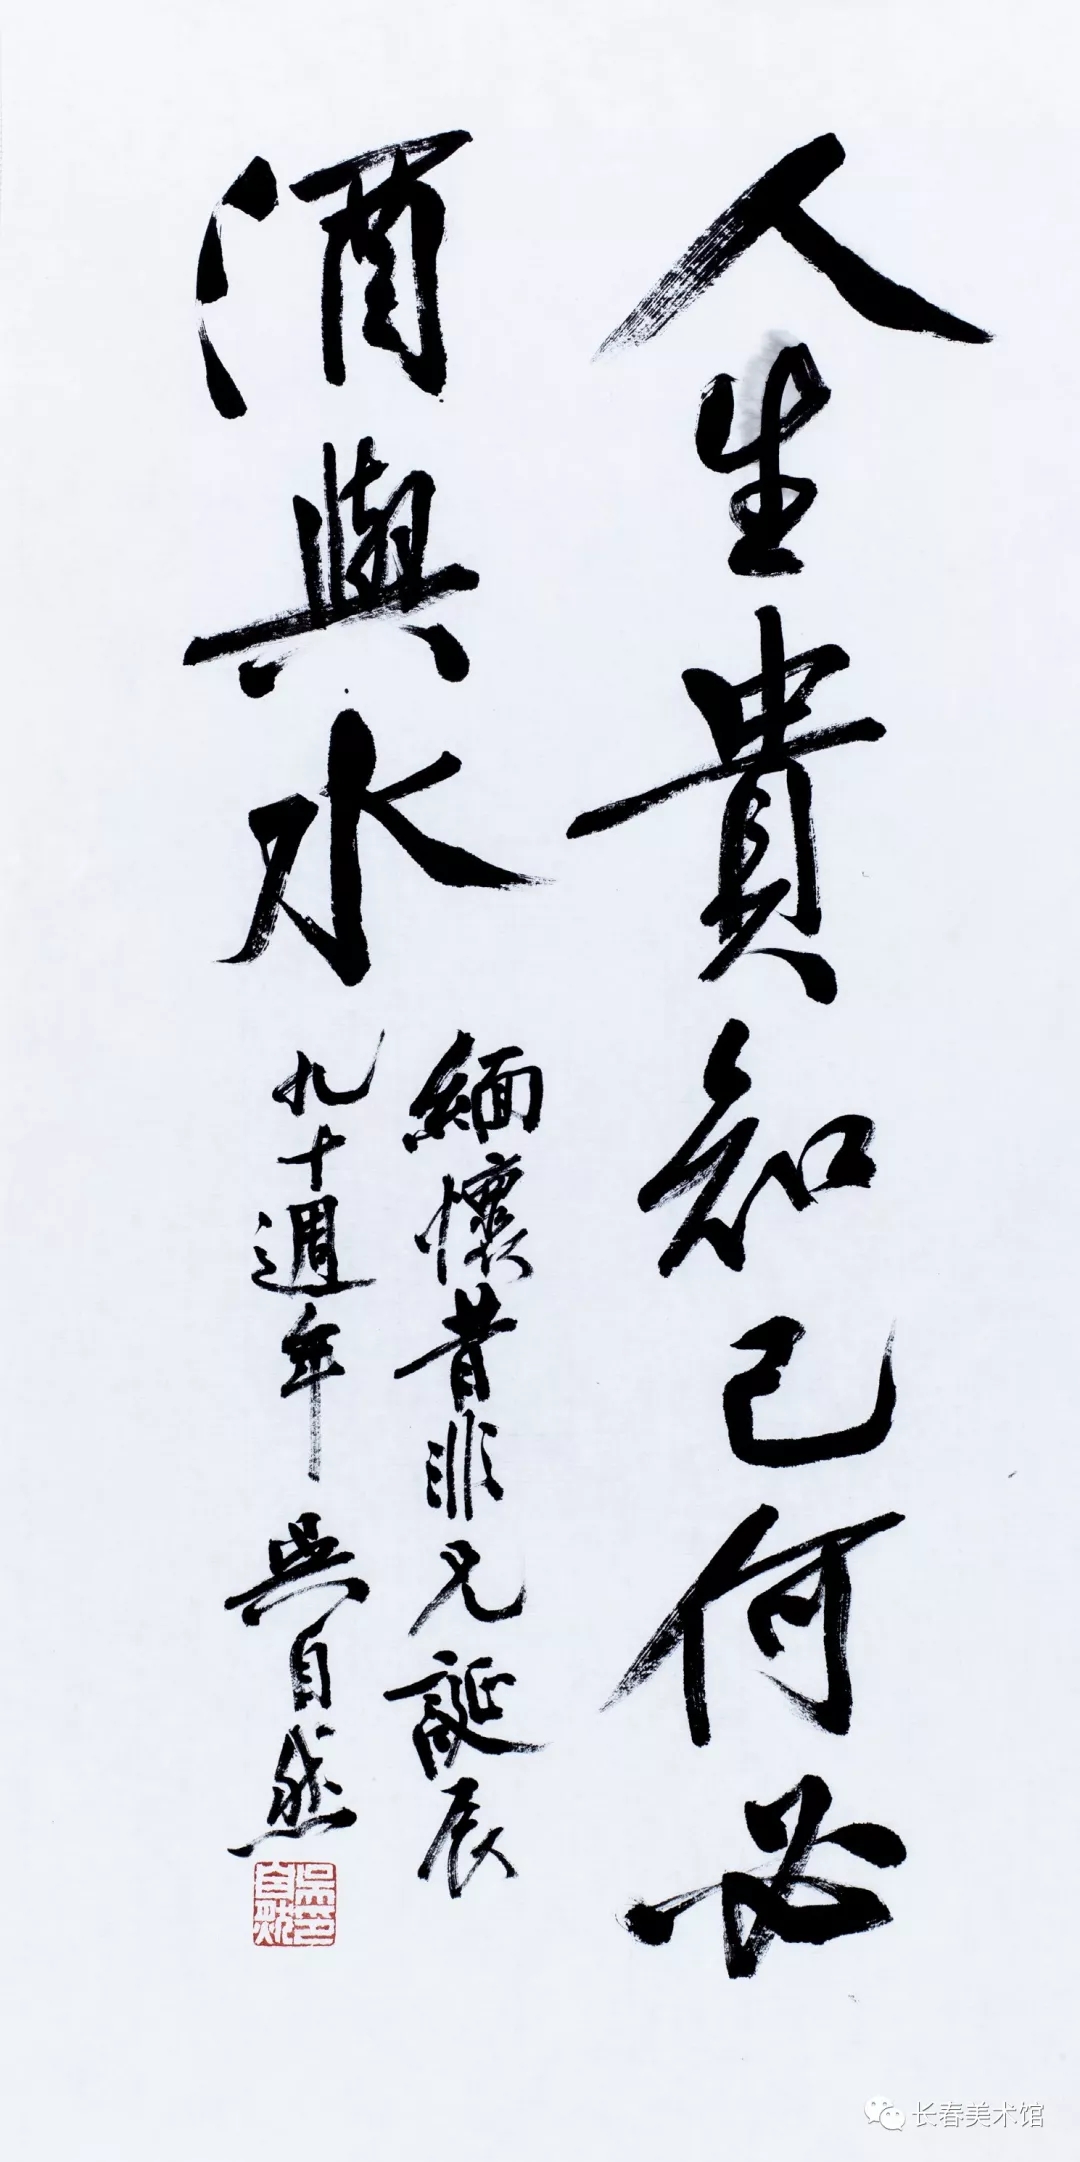 人生貴知己何必
酒與水
緬懷昔非兄誕辰
九十週年 吳自然
吳自然印
长春美术馆